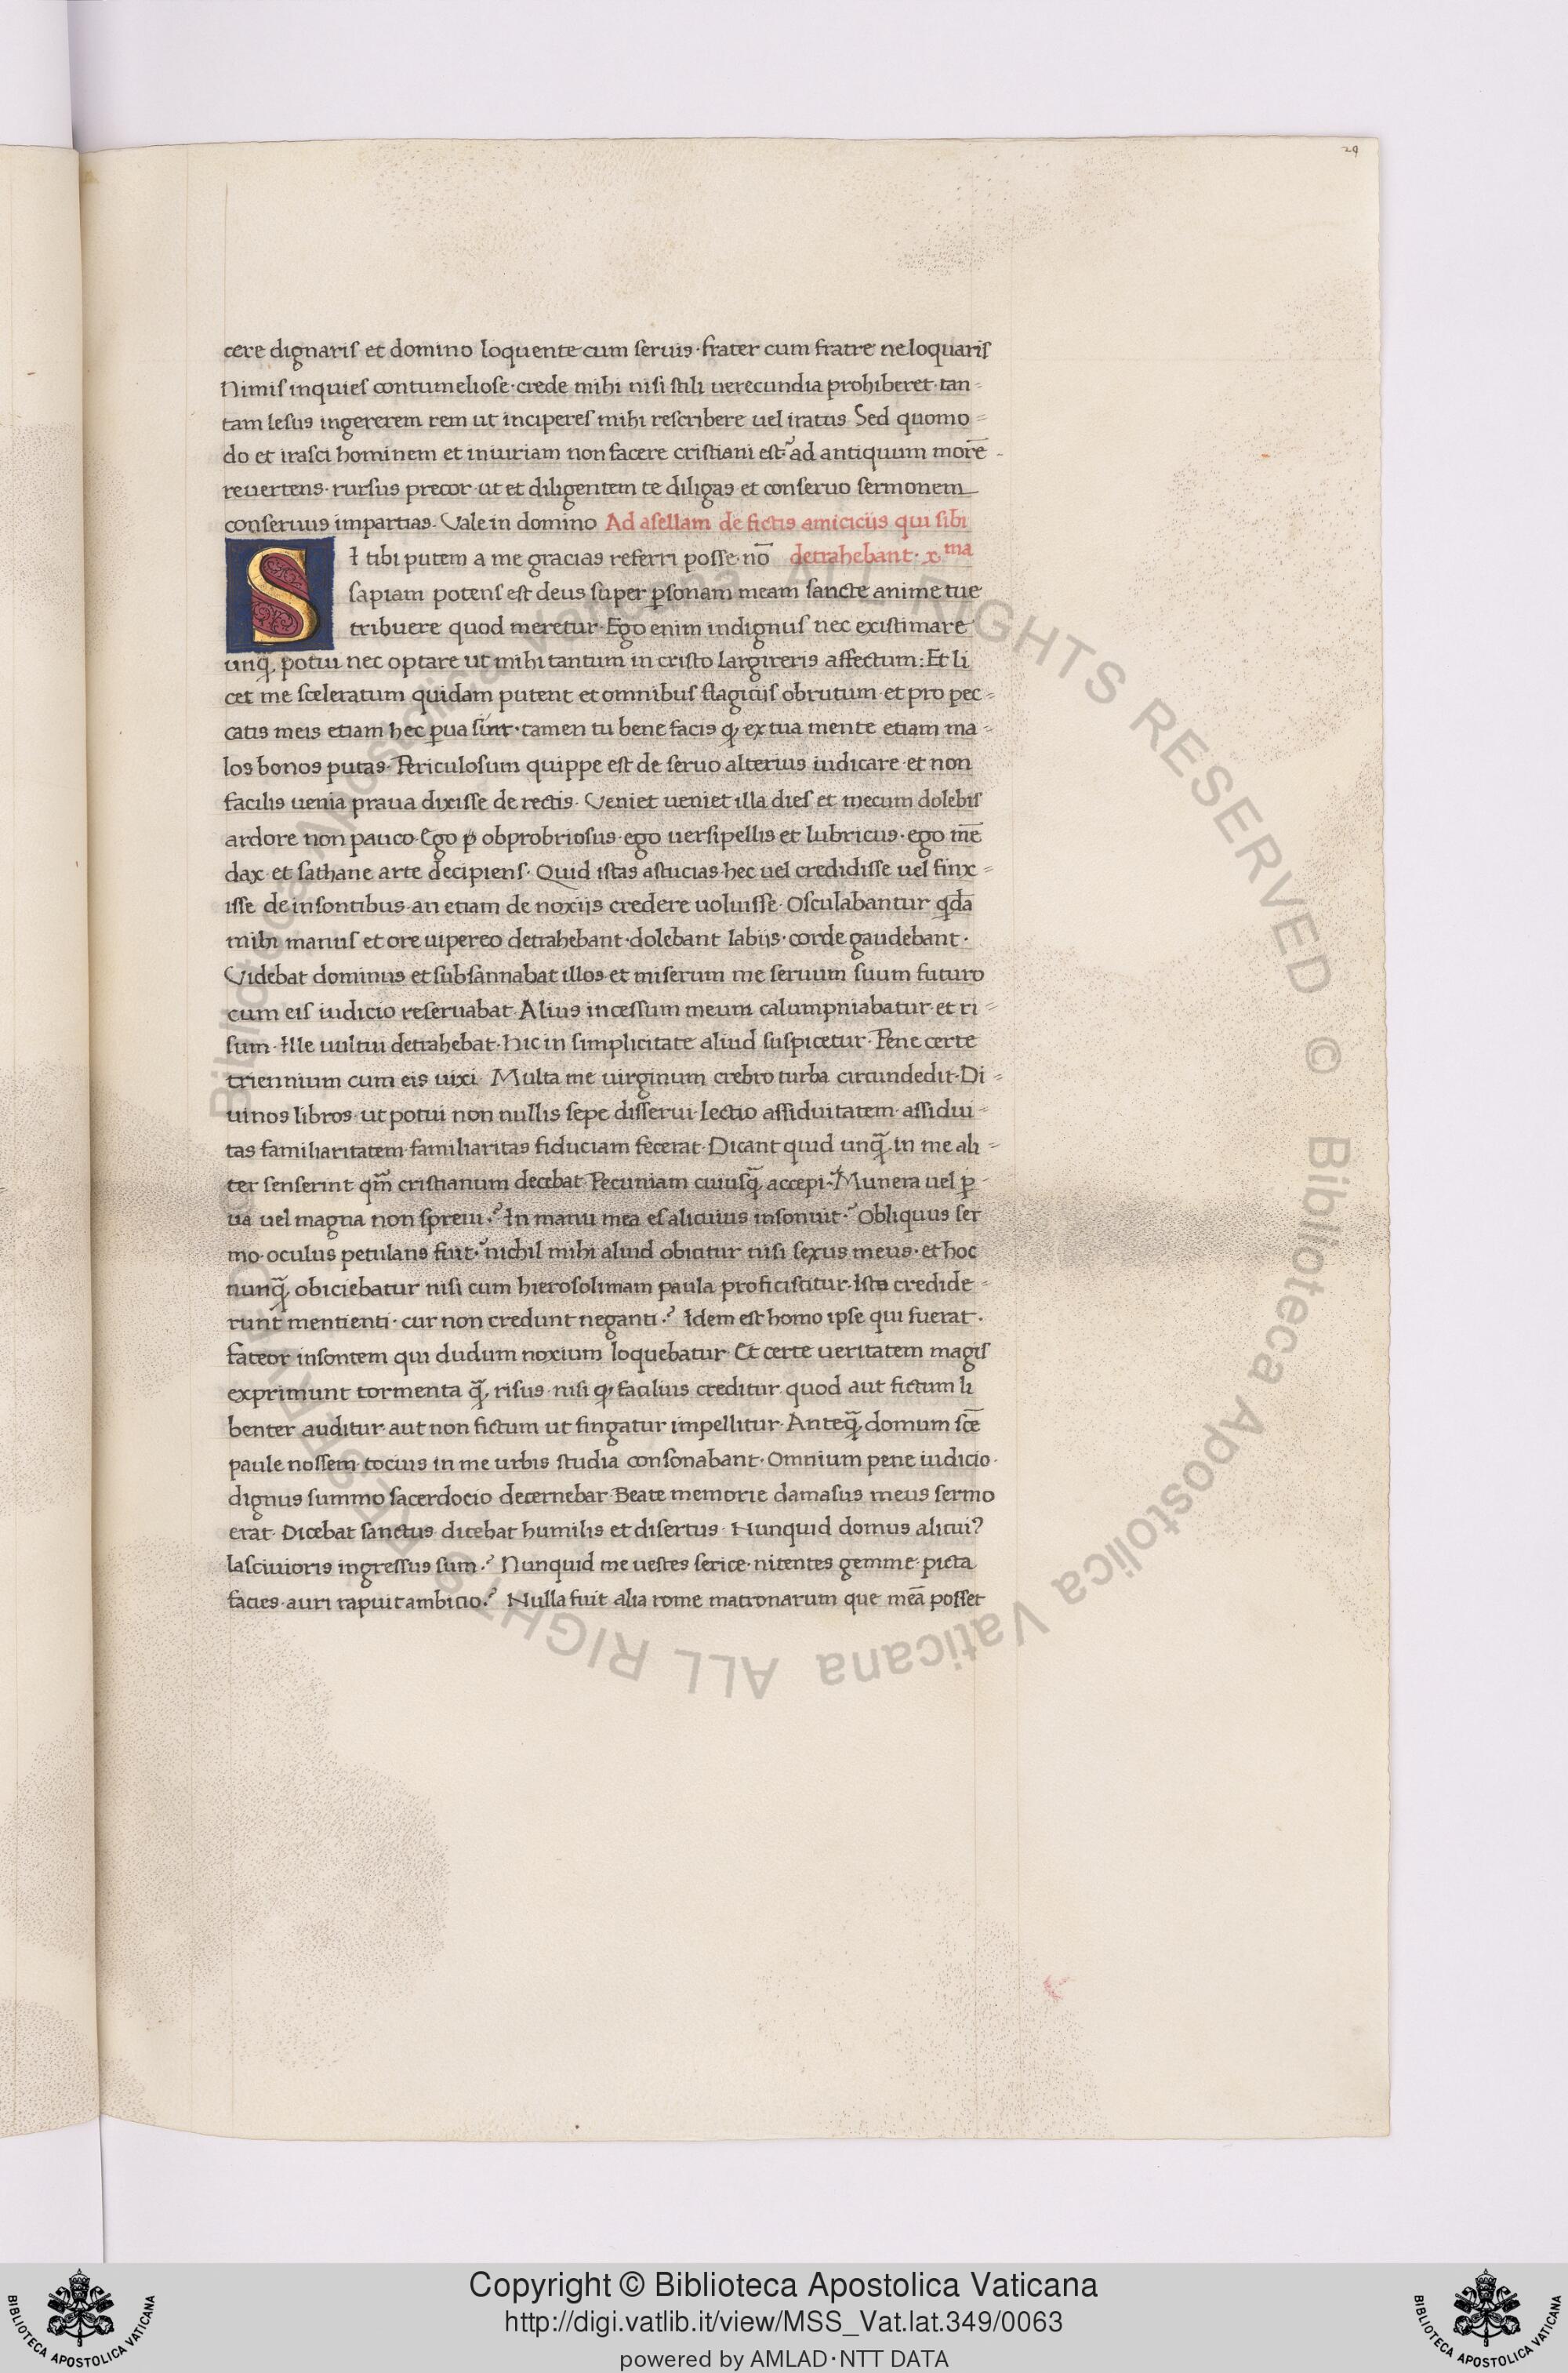 29
cere dignaris et domino loquente cum seruis · frater cum fratre ne loquaris
Nimis inquies contumeliose · crede mihi nisi stili uerecundia prohiberet · tan=
tam lesus ingererem rem ut inciperes mihi rescribere uel iratus Sed quomo=
do et irasci hominem et iniuriam non facere cristiani est: ad antiquum morē
reuertens · rursus precor · ut et diligentem te diligas et conseruo sermonem
conseruus impartias. Vale in domino Ad asellam de fictis amicicijs qui sibi
SI tibi putem a me gracias referri posse · nō detrahebant · x.ma
sapiam potens est deus super ꝑsonam meam sancte anime tue
tribuere quod meretur · Ego enim indignus nec existimare
unq̄, potui nec optare ut mihi tantum in cristo largireris affectum: Et li
cet me sceleratum quidam putent et omnibus flagicijs obrutum et pro pec=
catis meis etiam hec ꝑua sint · tamen tu bene facis ꝙ ex tua mente etiam ma=
los bonos putas · Periculosum quippe est de seruo alterius iudicare et non
facilis uenia praua dixisse de rectis · Veniet ueniet illa dies et mecum dolebis
ardore non pauco · Ego ꝓ obprobriosus · ego uersipellis et lubricus · ego mē
dax et sathane arte decipiens · Quid istas astucias hec uel credidisse uel finx=
isse de insontibus an etiam de noxijs credere uoluisse · Osculabantur qdā
mihi manus et ore uipereo detrahebant · dolebant labijs · corde gaudebant ·
Videbat dominus et subsannabat illos et miserum me seruum suum futuro
cum eis iudicio reseruabat · Alius incessum meum calumpniabatur · et ri=
sum · Ille uultui detrahebat · Hic in simplicitate aliud suspicetur · Pene certe
triennium cum eis uixi · Multa me uirginum crebro turba circundedit · Di=
uinos libros · ut potui non nullis sepe disserui · lectio assiduitatem · assidui=
tas familiaritatem familiaritas fiduciam fecerat · Dicant quid unq̄, in me ali=
ter senserint qm̄ cristianum decebat · Pecuniam cuiusq̄, accepi? Munera uel ꝑ=
ua uel magna non spreui? In manu mea es alicuius insonuit? Obliquus ser
mo · oculus petulans fuit? nichil mihi aliud obicitur nisi sexus meus · et hoc
nunq̄, obiciebatur nisi cum hierosolimam paula proficiscitur · Isto credide=
runt mentienti · cur non credunt neganti? Idem est homo ipse qui fuerat ·
fateor insontem qui dudum noxium loquebatur · Et certe ueritatem magis
exprimunt tormenta q̄, risus · nisi ꝙ facilius creditur quod aut fictum li
benter auditur · aut non fictum ut fingatur impellitur · Anteq̄, domum scē
paule nossem · tocius in me urbis studia consonabant · Omnium pene iudicio ·
dignus summo sacerdocio decernebar · Beate memorie damasus meus sermo
erat · Dicebat sanctus dicebat humilis et disertus · Nunquid domus alicui?
lasciuioris ingressus sum? Nunquid me uestes serice · nitentes gemme · picta
facies · auri rapuit ambicio? Nulla fuit alia rome matronarum que meā posset
Biblioteca Apostolica Vaticana ALL RIGHTS RESERVED © Biblioteca Apostolica Vaticana ALL RIGHTS RESERVED ©
Copyright © Biblioteca Apostolica Vaticana
http://digi.vatlib.it/view/MSS_Vat.lat.349/0063
powered by AMLAD·NTT DATA
BIBLIOTECA APOSTOLICA VATICANA
BIBLIOTECA APOSTOLICA VATICANA